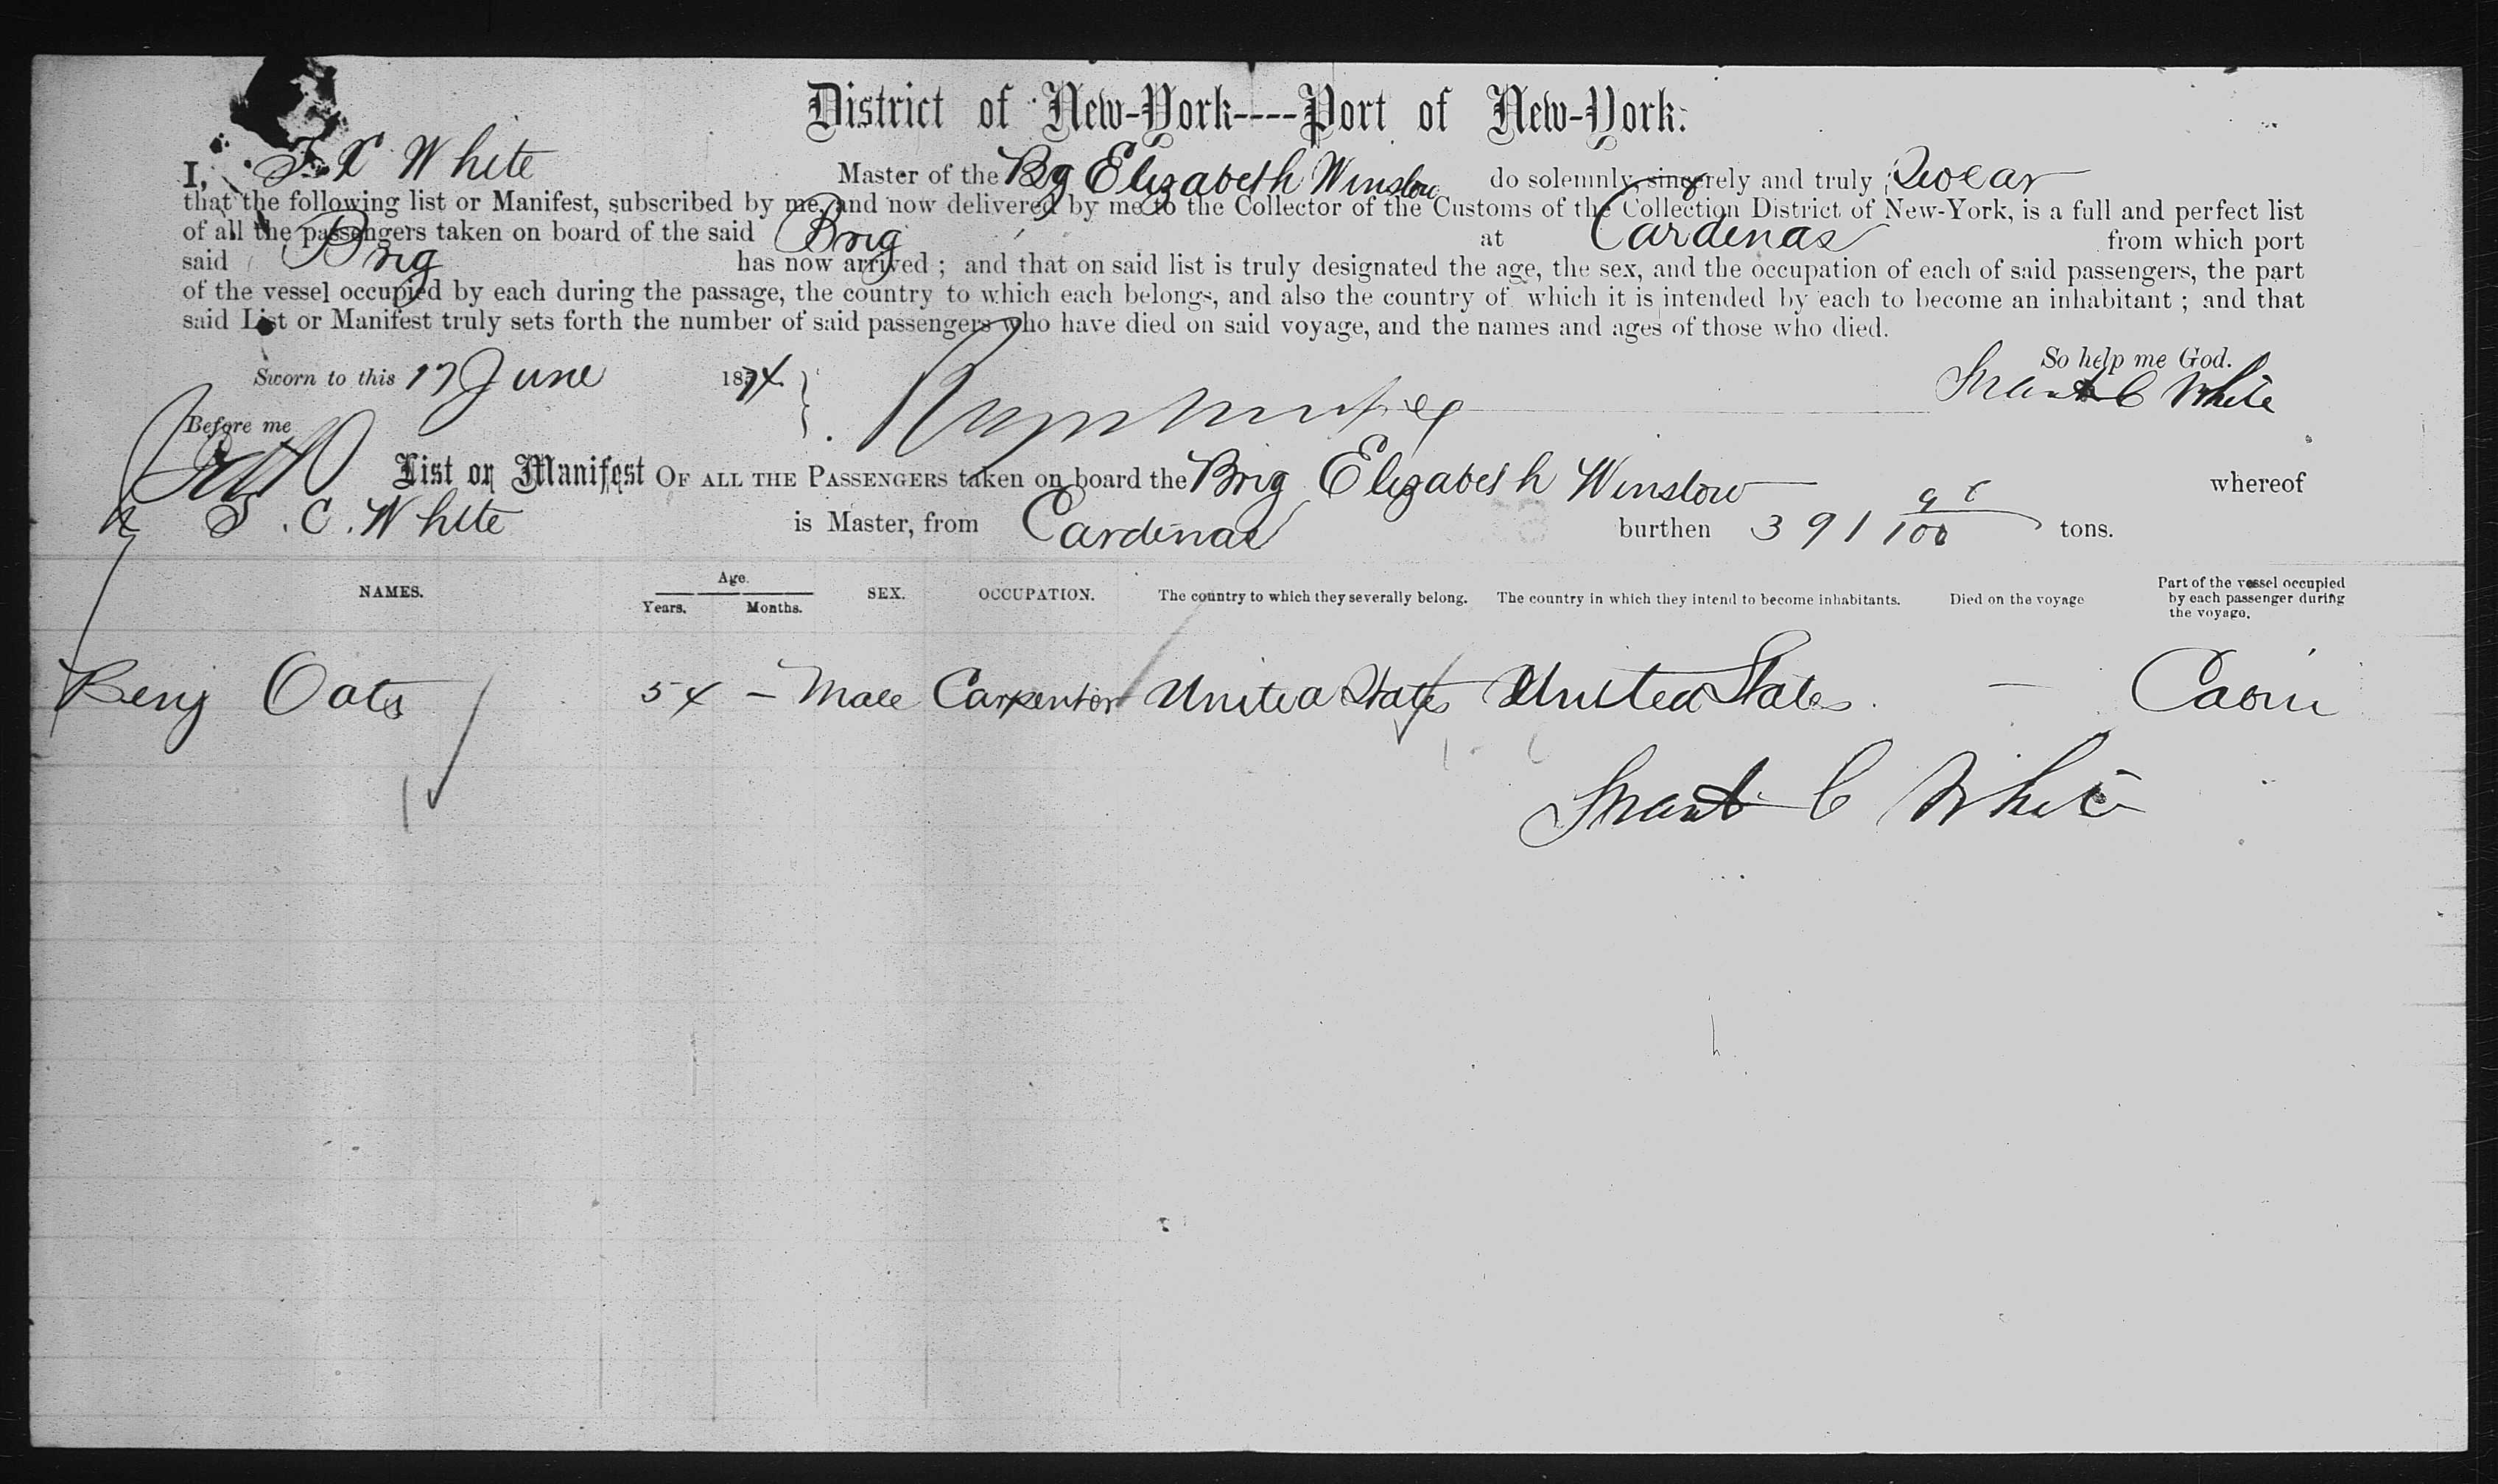 District of New-York----Port of New-York.
I, S. C. White Master of the Bg Elizabeth Winslow do solemnly, sincerely and truly Swear
that the following list or Manifest, subscribed by me, and now delivered by me to the Collector of the Customs of the Collection District of New-York, is a full and perfect list
of all the passengers taken on board of the said Brig at Cardenas from which port
said Brig has now arrived ; and that on said list is truly designated the age, the sex, and the occupation of each of said passengers, the part
of the vessel occupied by each during the passage, the country to which each belongs, and also the country of which it is intended by each to become an inhabitant ; and that
said List or Manifest truly sets forth the number of said passengers who have died on said voyage, and the names and ages of those who died.
So help me God.
Sworn to this 17 June 1874 C White
Before me
List or Manifest OF ALL THE PASSENGERS taken on board the Brig Elizabeth Winslow whereof
S. C. White is Master, from Cardenas burthen 391 /100 tons.
NAMES. Age. Years. Months. SEX. OCCUPATION. The country to which they severally belong. The country in which they intend to become inhabitants. Died on the voyage Part of the vessel occupied by each passenger during the voyage.
Benj Oats 54 — Male Carpenter United States United States — Cabin
C White